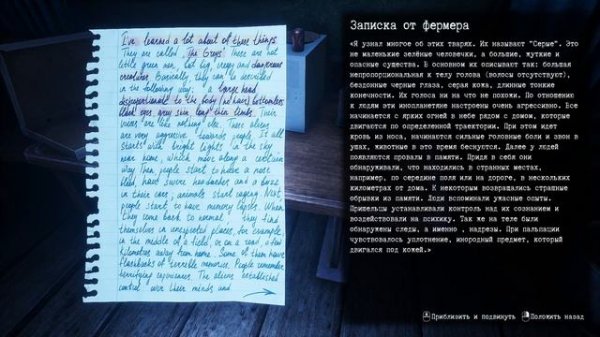 I've learned a lot about of these things.
They are called "The Greys". These are not
little green men, but big, creepy and dangerous
creatures. Basically, they can be described
in the following way: a large head,
disproportionate to the body (no hair), bottomless
black eyes, grey skin, long thin limbs. Their
voices are like nothing else. These aliens
are very aggressive towards people. It all
starts with bright lights in the sky
near home, which move along a certain
way. Then people start to have a nose
bleed, have severe headaches and a buzz
in their ears, animals start rages. Next
people start to have memory lapses. When
they come back to normal, they find
themselves in unexpected places, for example,
in the middle of a field, or on a road, a few
kilometers away from home. Some of them have
flashbacks of terrible memories. People remember
terrifying experiences. The aliens established
control over their minds and
Записка от фермера
«Я узнал многое об этих тварях. Их называют "Серые". Это
не маленькие зелёные человечки, а большие, жуткие и
опасные существа. В основном их описывают так: большая
непропорциональная к телу голова (волосы отсутствуют),
бездонные черные глаза, серая кожа, длинные тонкие
конечности. Их голоса ни на что не похожи. По отношению
к людям эти инопланетяне настроены очень агрессивно. Все
начинается с ярких огней в небе рядом с домом, которые
двигаются по определенной траектории. При этом идет
кровь из носа, начинаются сильные головные боли и звон в
ушах, животные в это время беснуется. Далее у людей
появляются провалы в памяти. Придя в себя они
обнаруживали, что находились в странных местах,
например, по середине поля или на дороге, в нескольких
километрах от дома. К некоторым возвращались страшные
обрывки из памяти. Люди вспоминали ужасные опыты.
Пришельцы устанавливали контроль над их сознанием и
воздействовали на психику. Так же на теле были
обнаружены следы, а именно , надрезы. При пальпации
чувствовалось уплотнение, инородный предмет, который
двигался под кожей.»
Приблизить и подвинуть Положить назад